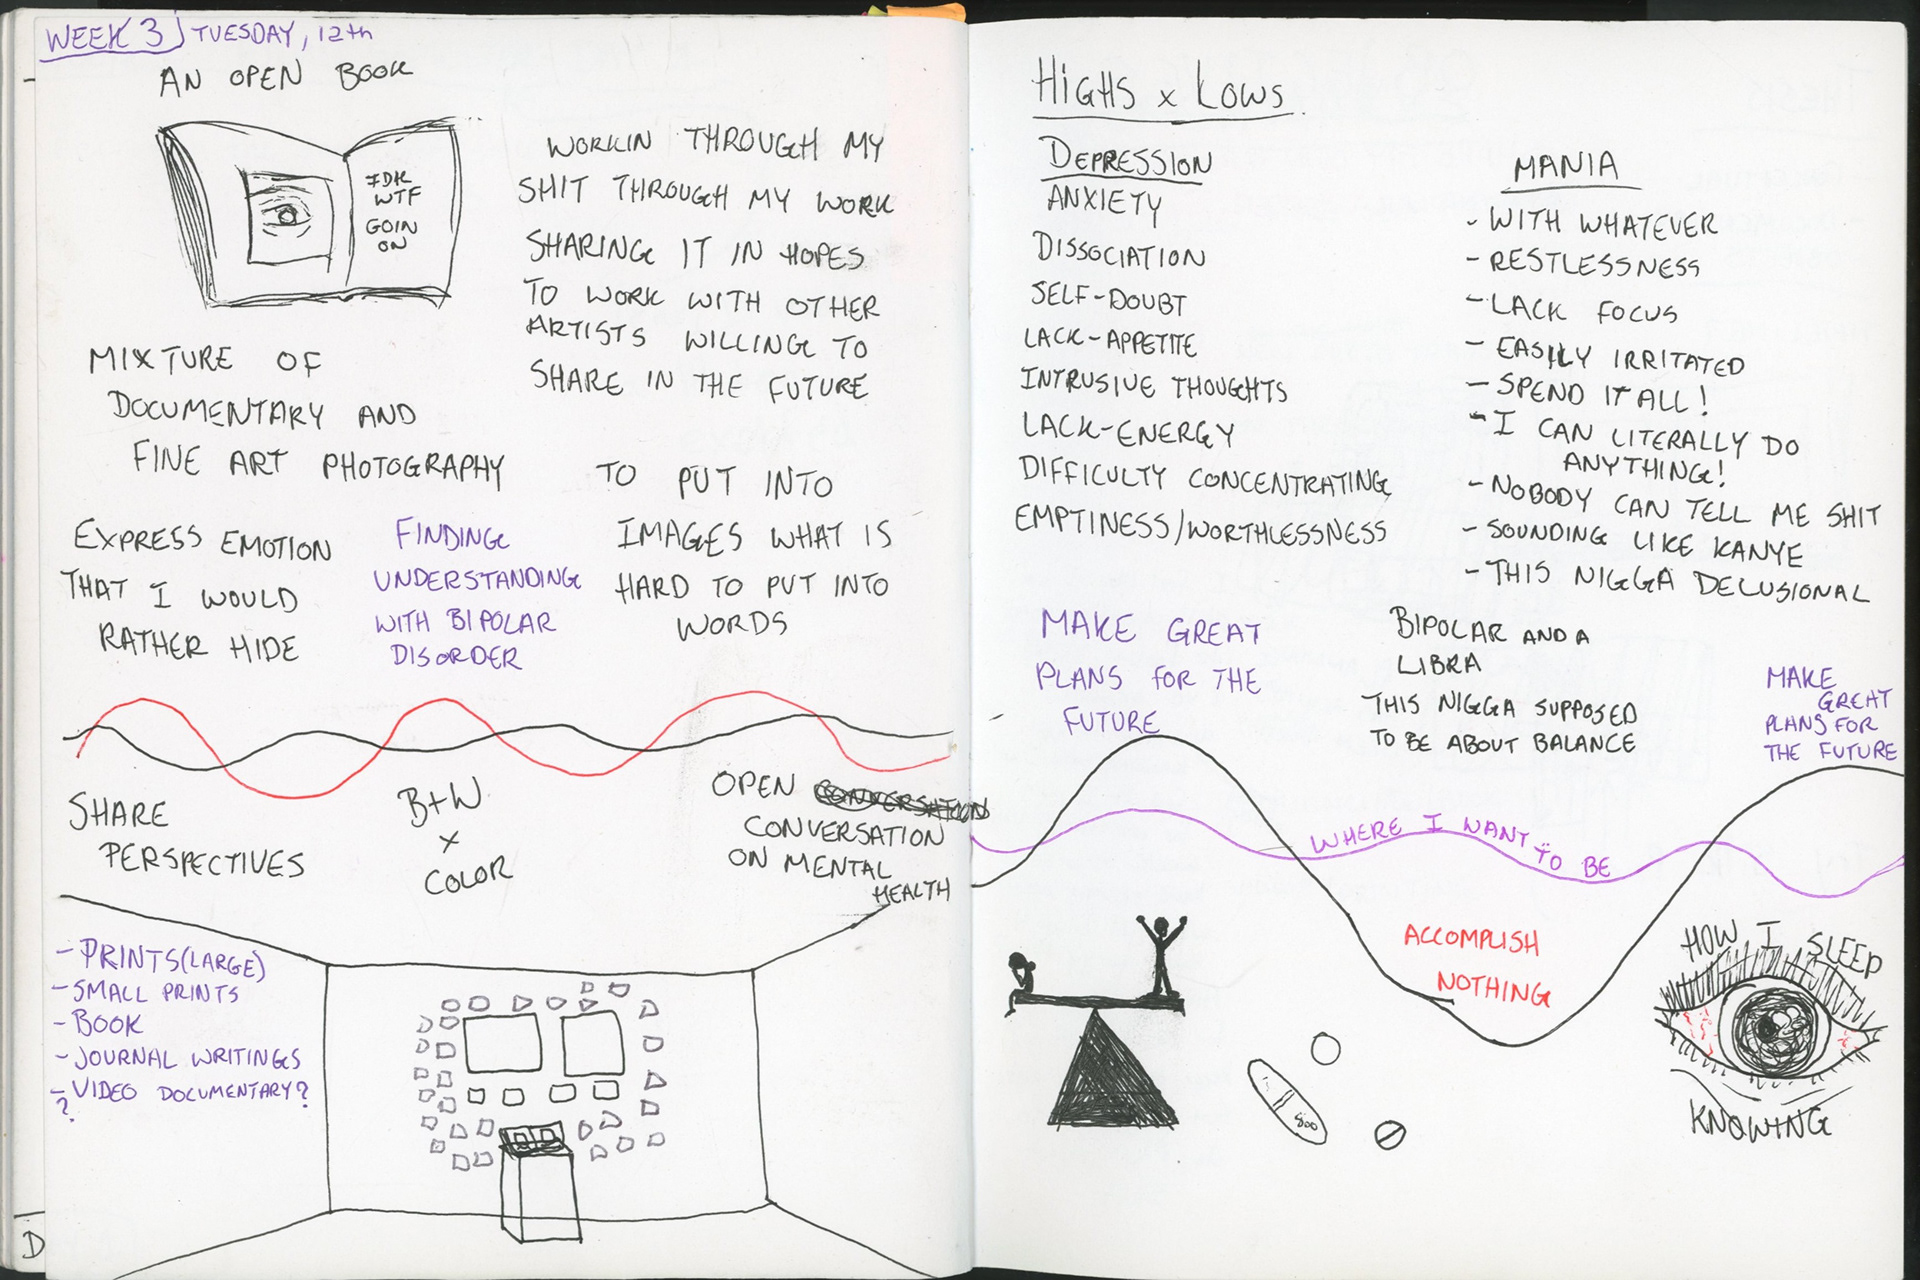 WEEK 3 TUESDAY, 12th
AN OPEN BOOK
IDK
WTF
GOIN
ON
WORKIN THROUGH MY
SHIT THROUGH MY WORK
SHARING IT IN HOPES
TO WORK WITH OTHER
ARTISTS WILLING TO
SHARE IN THE FUTURE
MIXTURE OF
DOCUMENTARY AND
FINE ART PHOTOGRAPHY
EXPRESS EMOTION
THAT I WOULD
RATHER HIDE
FINDING
UNDERSTANDING
WITH BIPOLAR
DISORDER
TO PUT INTO
IMAGES WHAT IS
HARD TO PUT INTO
WORDS
SHARE
PERSPECTIVES
B+W
x
COLOR
OPEN CONVERSATION
CONVERSATION
ON MENTAL
HEALTH
- PRINTS (LARGE)
- SMALL PRINTS
- BOOK
- JOURNAL WRITINGS
- VIDEO DOCUMENTARY?
?
D
HIGHS x LOWS
DEPRESSION
ANXIETY
DISSOCIATION
SELF-DOUBT
LACK-APPETITE
INTRUSIVE THOUGHTS
LACK-ENERGY
DIFFICULTY CONCENTRATING
EMPTINESS/WORTHLESSNESS
MANIA
- WITH WHATEVER
- RESTLESSNESS
- LACK FOCUS
- EASILY IRRITATED
- SPEND IT ALL!
- I CAN LITERALLY DO
ANYTHING!
- NOBODY CAN TELL ME SHIT
- SOUNDING LIKE KANYE
- THIS NIGGA DELUSIONAL
MAKE GREAT
PLANS FOR THE
FUTURE
BIPOLAR AND A
LIBRA
THIS NIGGA SUPPOSED
TO BE ABOUT BALANCE
MAKE
GREAT
PLANS FOR
THE FUTURE
WHERE I WANT TO BE
ACCOMPLISH
NOTHING
HOW I SLEEP
KNOWING
300